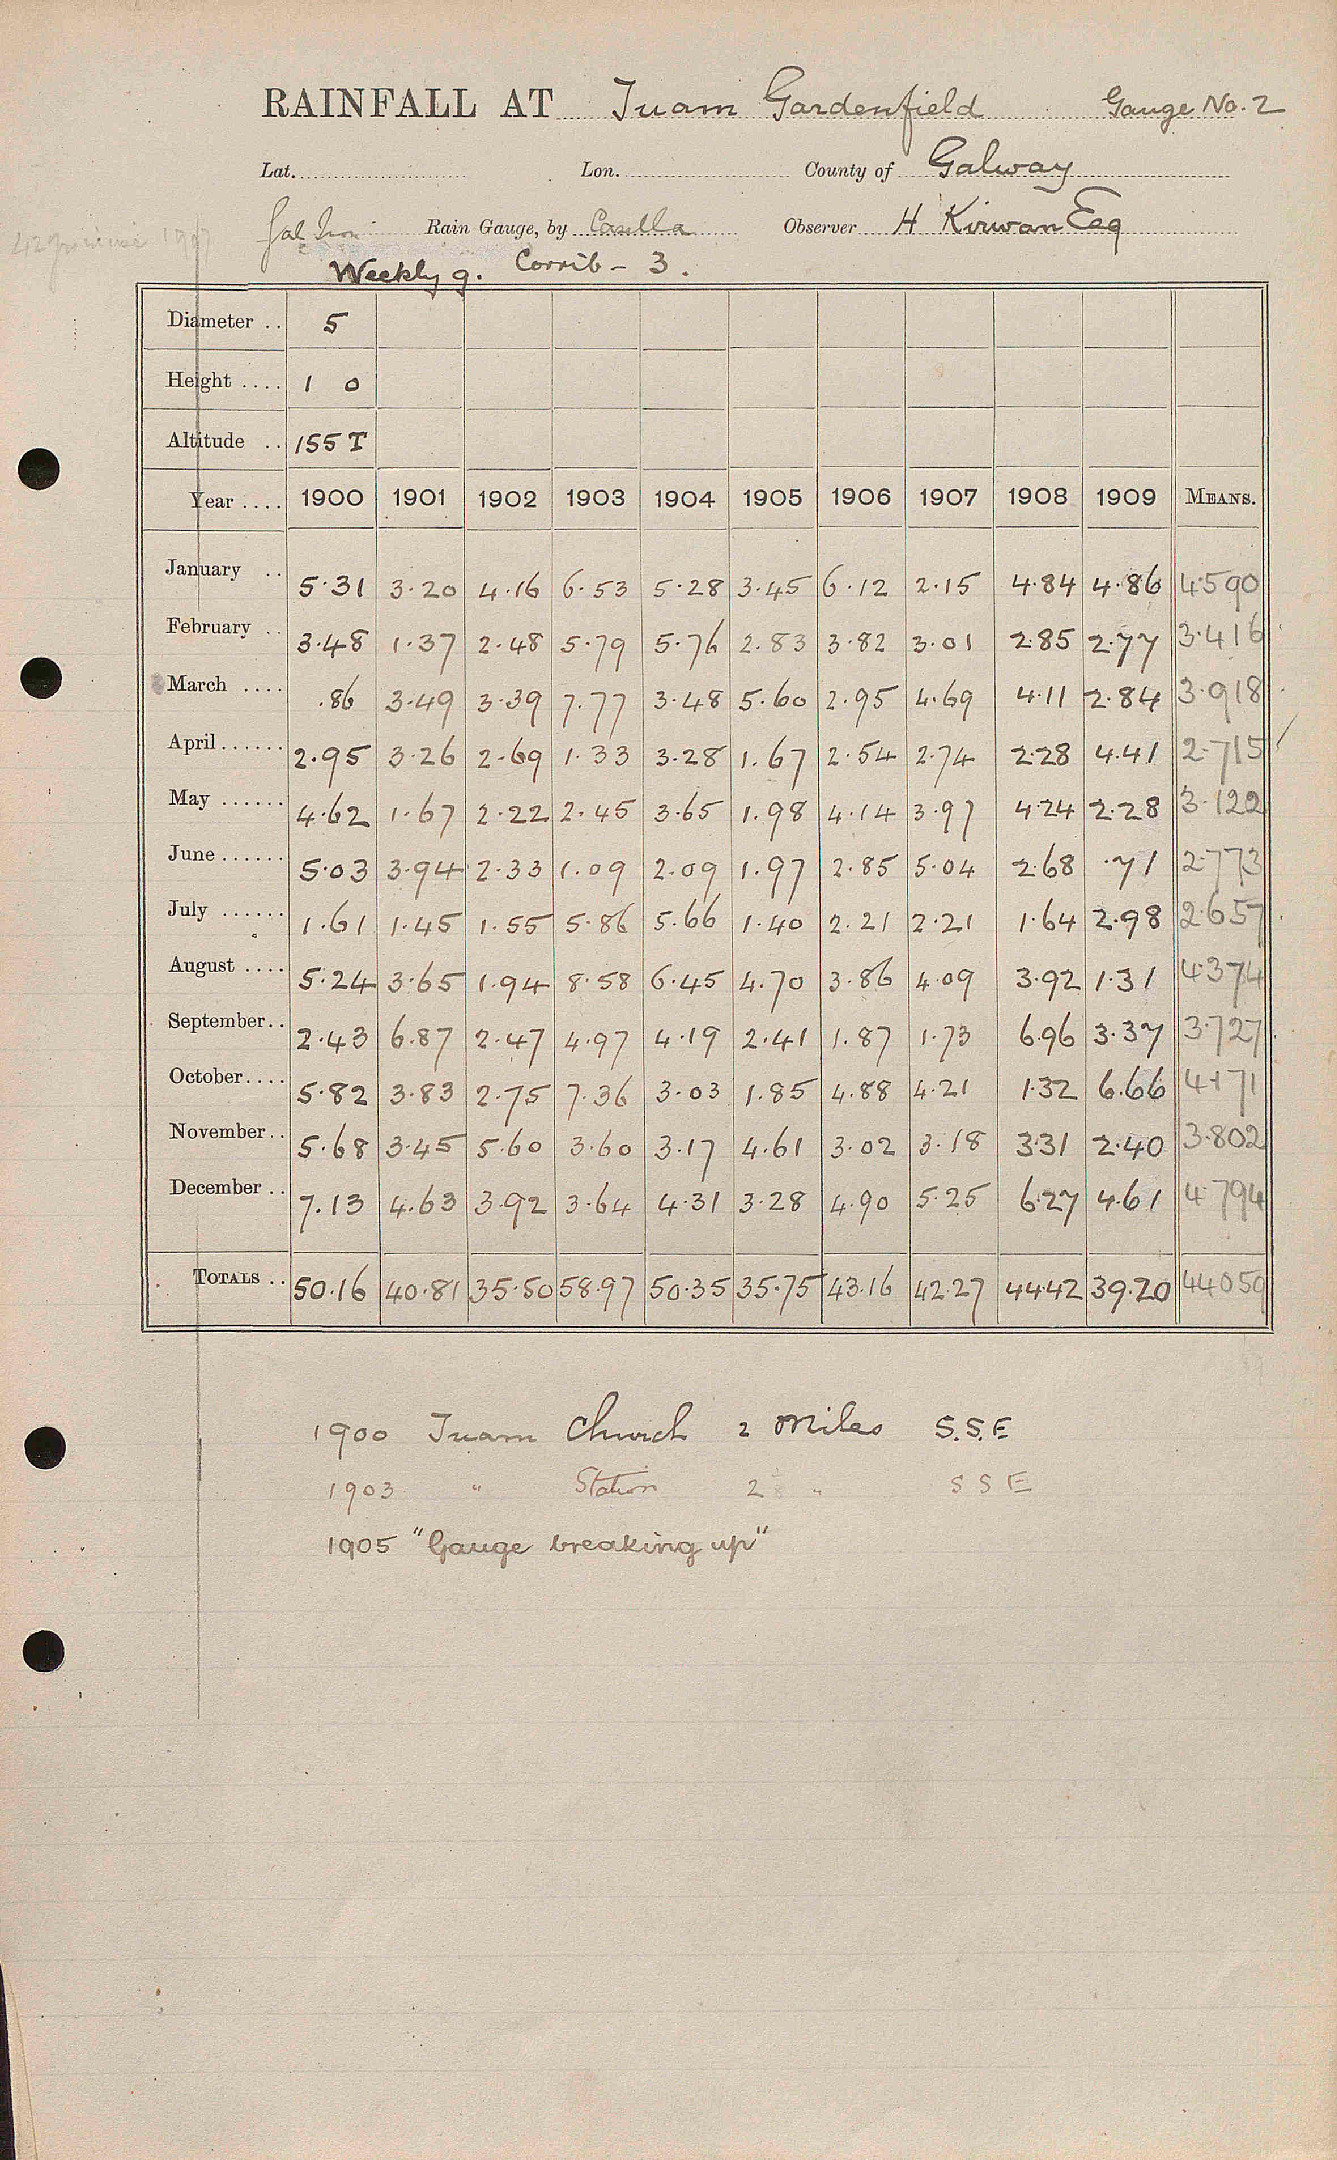 RAINFALL AT Tuam Gardenfield Gauge No. 2
Lat. Lon. County of Galway
Gal Iron Rain Gauge, by Casella Observer H Kirwan Esq
Weekly g. Corrib - 3.
Diameter .. 5
Height .... 1 0
Altitude .. 155 T
Year .... 1900 1901 1902 1903 1904 1905 1906 1907 1908 1909 MEANS.
January .. 5.31 3.20 4.16 6.53 5.28 3.45 6.12 2.15 4.84 4.86 4.590
February .. 3.48 1.37 2.48 5.79 5.76 2.83 3.82 3.01 2.85 2.77 3.416
March .... .86 3.49 3.39 7.77 3.48 5.60 2.95 4.69 4.11 2.84 3.918
April ...... 2.95 3.26 2.69 1.33 3.28 1.67 2.54 2.74 2.28 4.41 2.715
May ...... 4.62 1.67 2.22 2.45 3.65 1.98 4.14 3.97 4.24 2.28 3.122
June ...... 5.03 3.94 2.33 1.09 2.09 1.97 2.85 5.04 2.68 .71 2.773
July ...... 1.61 1.45 1.55 5.86 5.66 1.40 2.21 2.21 1.64 2.98 2.657
August .... 5.24 3.65 1.94 8.58 6.45 4.70 3.86 4.09 3.92 1.31 4.374
September .. 2.43 6.87 2.47 4.97 4.19 2.41 1.87 1.73 6.96 3.37 3.727
October .... 5.82 3.83 2.75 7.36 3.03 1.85 4.88 4.21 1.32 6.66 4.171
November .. 5.68 3.45 5.60 3.60 3.17 4.61 3.02 3.18 3.31 2.40 3.802
December .. 7.13 4.63 3.92 3.64 4.31 3.28 4.90 5.25 6.27 4.61 4.794
TOTALS .. 50.16 40.81 35.50 58.97 50.35 35.75 43.16 42.27 44.42 39.20 44.059
1900 Tuam Church 2 Miles S.S.E
1903 " Station 2 " S S E
1905 "Gauge breaking up"